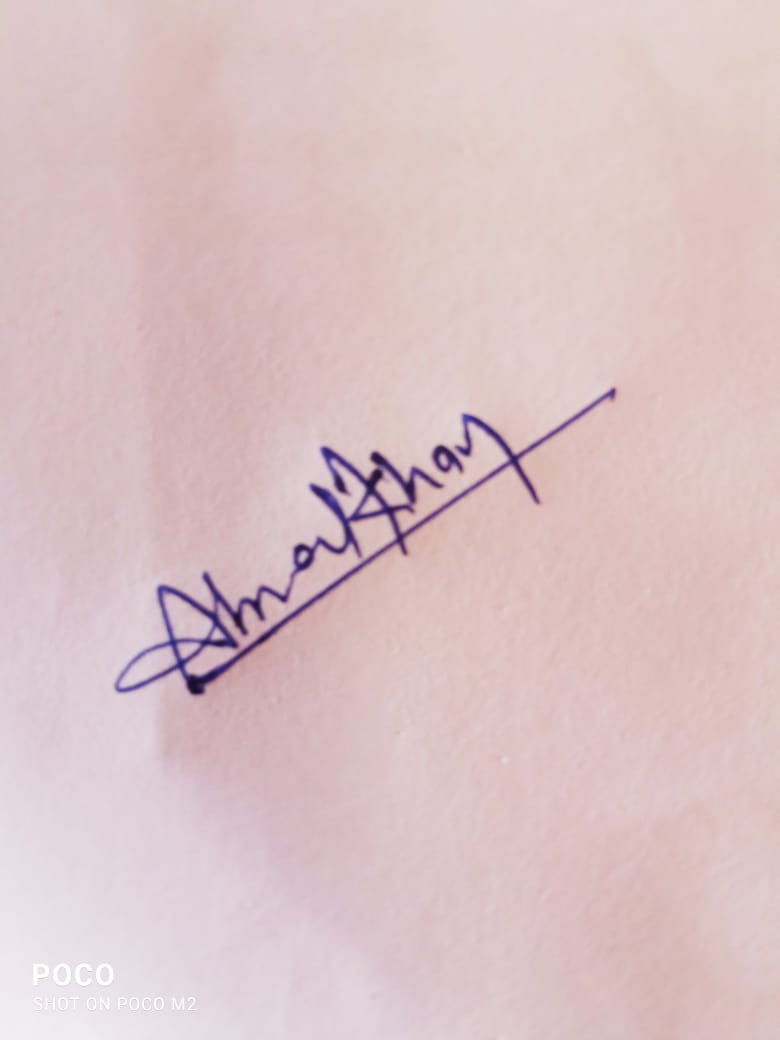 Ahmad Khan
POCO
SHOT ON POCO M2